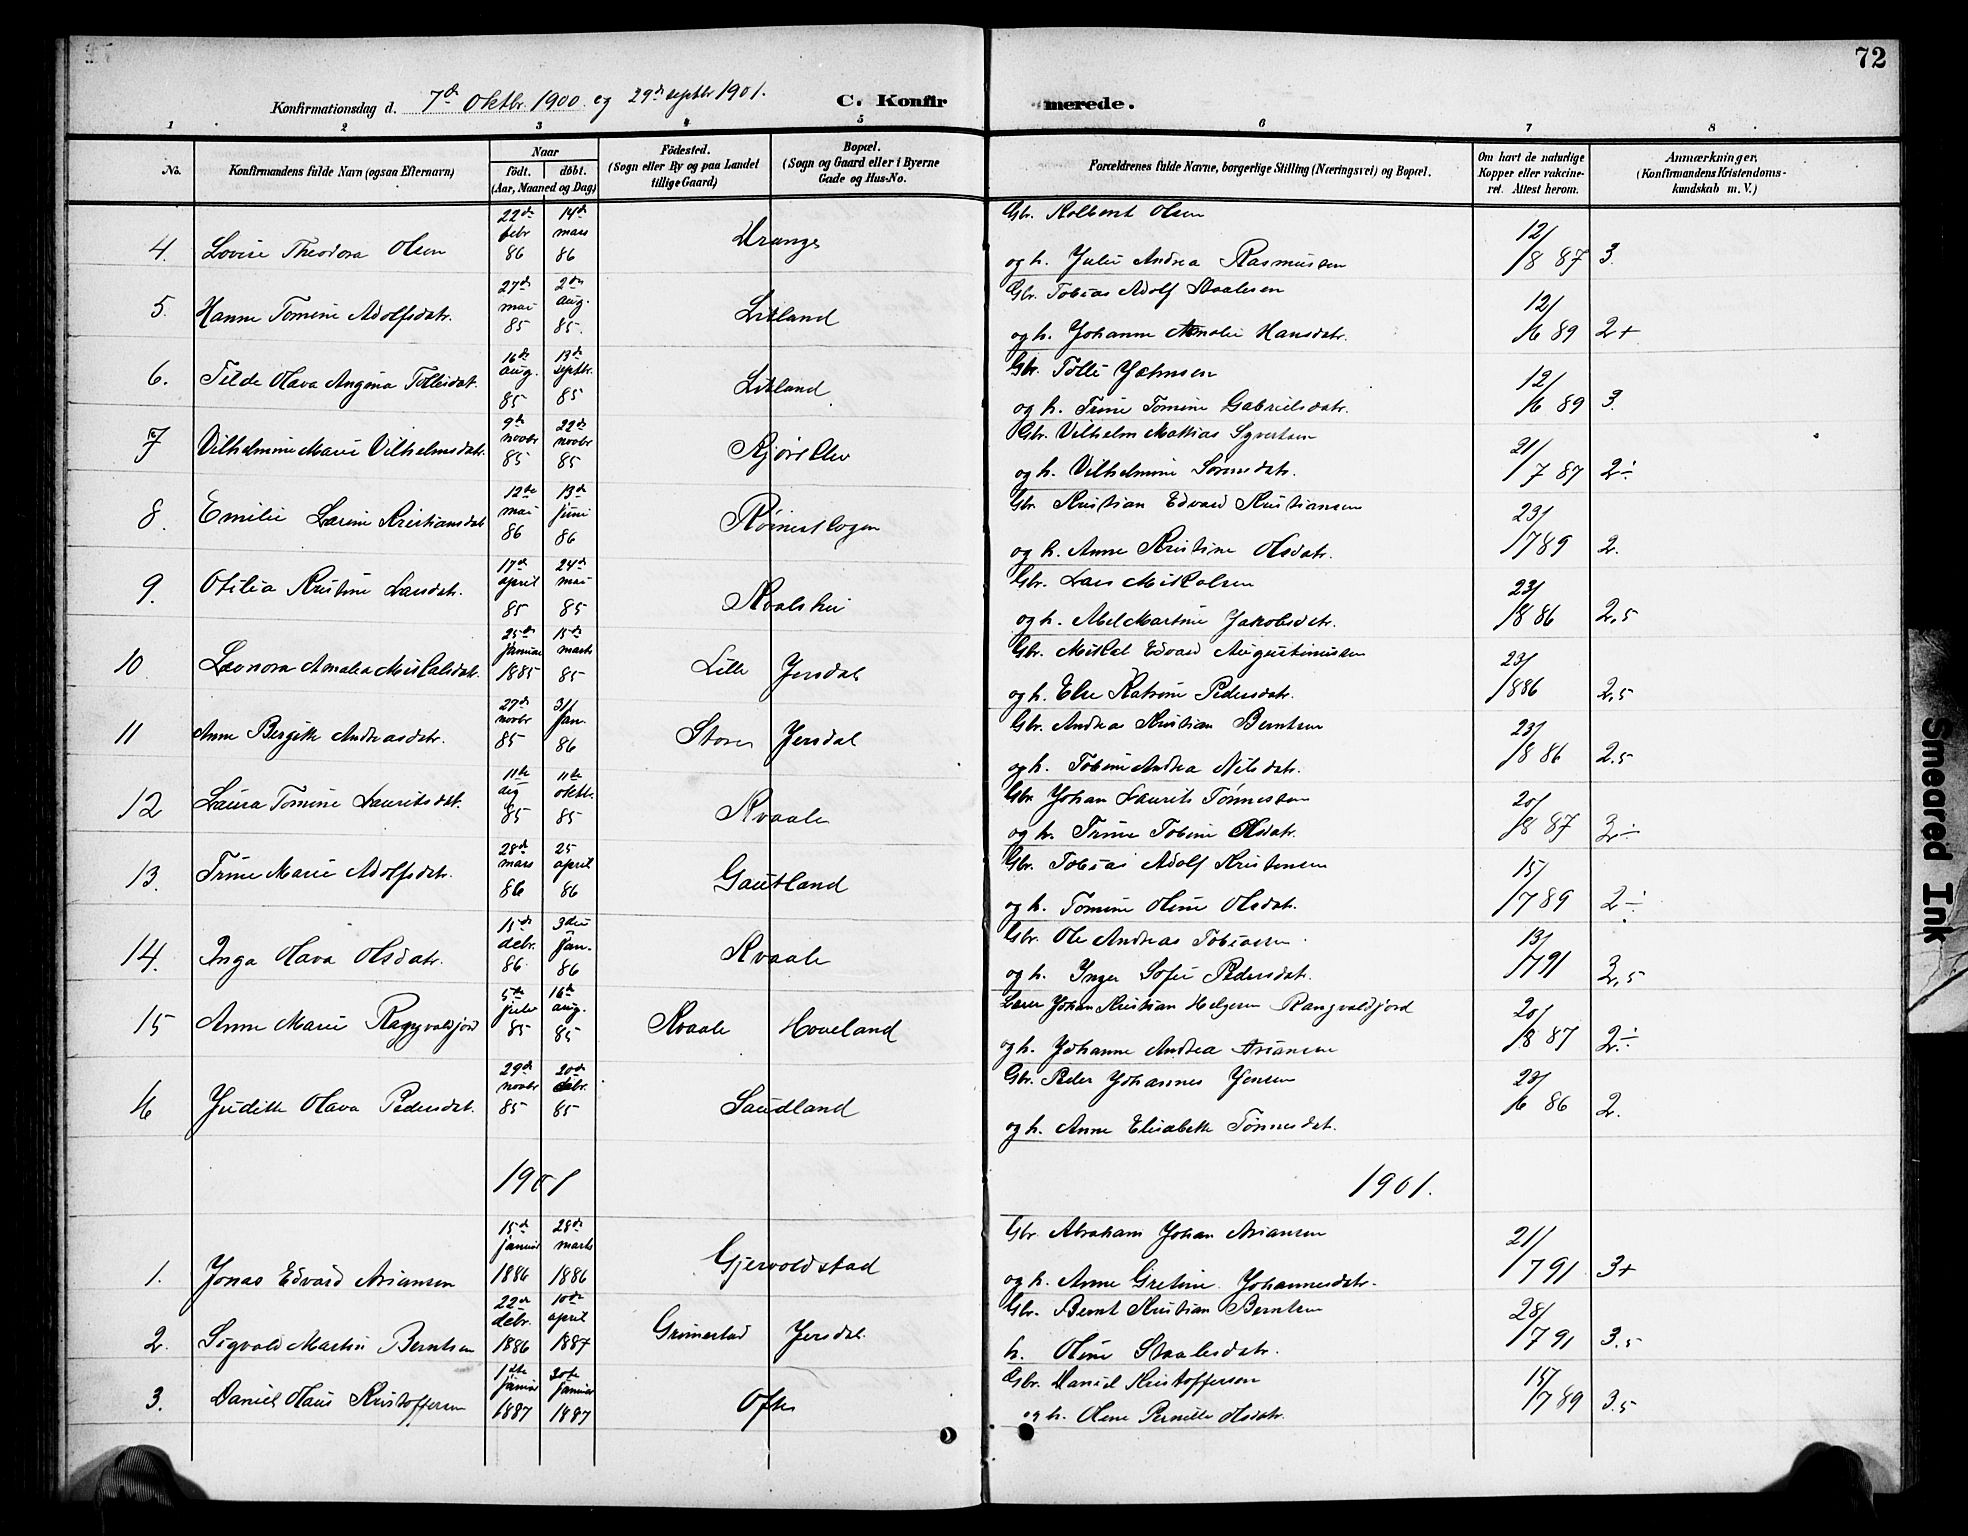 72
Konfirmationsdag d. 7de Oktbr. 1900 og 29de septbr 1901.
C. Konfirmerede.
1 2 3 4 5 6 7 8
No.
Konfirmandens fulde Navn (ogsaa Efternavn)
Naar
födt. döbt.
(Aar, Maaned og Dag)
Födested.
(Sogn eller By og paa Landet
tillige Gaard)
Bopæl.
(Sogn og Gaard eller i Byerne
Gade og Hus-No.
Forældrenes fulde Navne, borgerlige Stilling (Næringsvei) og Bopæl.
Om havt de naturlige
Kopper eller vakcine-
ret. Attest herom.
Anmærkninger,
(Konfirmandens Kristendoms-
kundskab m. V.)
4. Lovise Theodora Olsen 22de febr 86 14de mars 86 Gbr. Kolbent Olsen
og h. Julie Andrea Rasmussen 12/8 87 3.
5. Hanne Tomine Adolfsdatr. 27de mai 85 2den aug. 85. Litland Gbr. Tobias Adolf Staalesen
og h. Johanne Amalie Hansdatr. 12/6 89 2+
6. Tilde Olava Angena Tollisdat. 16de aug. 85 13de septbr. 85 Litland Gbr. Tolli Jahnsen
og h. Trine Tomine Gabrielsdatr. 12/6 89 3.
7 Vilhelmine Marie Vilhelmsdatr. 9de novbr 85 22de novbr 85 Gbr. Vilhelm Mathias Syvertsen
og h. Vilhelmine Sørensdatr. 21/7 87 2÷
8. Emilie Larine Kristiansdat 12te mai 86 13de juni 86 Gbr. Kristian Edvard Kristiansen
og h. Anne Kristine Olsdatr. 23/7 89 2.
9. Otilia Kristine Larsdatr. 17de april 85 24de mai 85 Kvalshei Gbr. Lars Mikalsen
og h. Abel Martine Jakobsdatr. 23/8 86 2,5
10. Leonora Amalia Mikalsdatr. 25de januar 1885 15de marts 85 Lille Jersdal Gbr. Mikal Edvard Augustinussen
og h. Else Katrine Pedersdatr. 23/8 86 2,5
11 Anne Bergitte Andreasdatr. 27de novbr 85 31/ jan. 86 Store Jersdal Gbr. Andrea Kristian Berntsen
og h. Tobine Andrea Nilsdatr. 23/8 86 2.5
12 Laura Tomine Lauritsdat. 11te aug 85 11te oktbr. 85 Kvaale Gbr Johan Laurits Tønnessen
og h. Trine Tobine Olsdatr. 20/8 87 3÷
13. Trine Marie Adolfsdatr. 28de mars 86 25 april 86 Gautland Gbr. Tobias Adolf Kristensen
og h. Tomine Oline Olsdatr. 15/7 89 2÷
14. Inga Olava Olsdatr. 15de debr. 86 3die jan. 86 Kvaale Gbr. Ole Andreas Tobiassen
og h. Inger Sofie Pedersdatr. 13/7 91 2,5
15 Anne Marie Ragnvaldjord 5te juli 85 16de aug. 85 Kvaale Hoveland Lærer Johan Kristian Helgesen Rangvaldjord
og h. Johanne Andrea Ariansen 20/8 87 2÷
16 Judith Olava Pedersdat. 29de novbr 85 20de debr. 85 Saudland Gbr. Peder Johannes Jensen
og h. Anne Elisabeth Tønnesdat. 6 86 2.
1901 1901.
1. Jonas Edvard Ariansen 15de januar 1886 28de marts 1886 Gjervoldstad Gbr. Abraham Johan Ariansen
og h. Anne Gretine Johannesdatr. 21/7 91 3+
2. Sigvald Martin Berntsen 22de debr. 1886 10de april 1887 Grimestad Jersdal Gbr. Bernt Kristian Berntsen
h. Oline Staalesdatr. 28/7 91 3.5
3. Daniel Olaus Kristoffersen 1ste januar 1887 30te januar 1887 Ofte Gbr. Daniel Kristoffersen
og h. Oline Pernille Olsdatr. 15/7 89 3.5
Smeared Ink